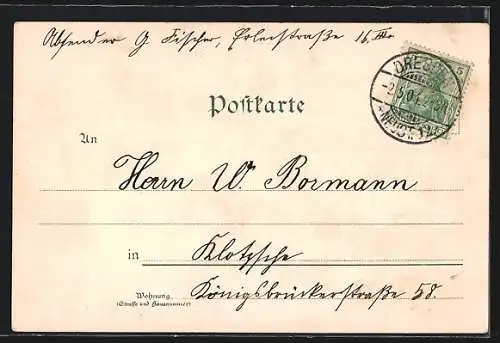 Absender G Fischer, Erlenstraße 16 III
5
DRESDEN
NEUST.
Postkarte
An
Herrn W. Bormann
in Klotzsche
Wohnung
(Straße und Hausnummer)
Königsbrückerstraße 58.